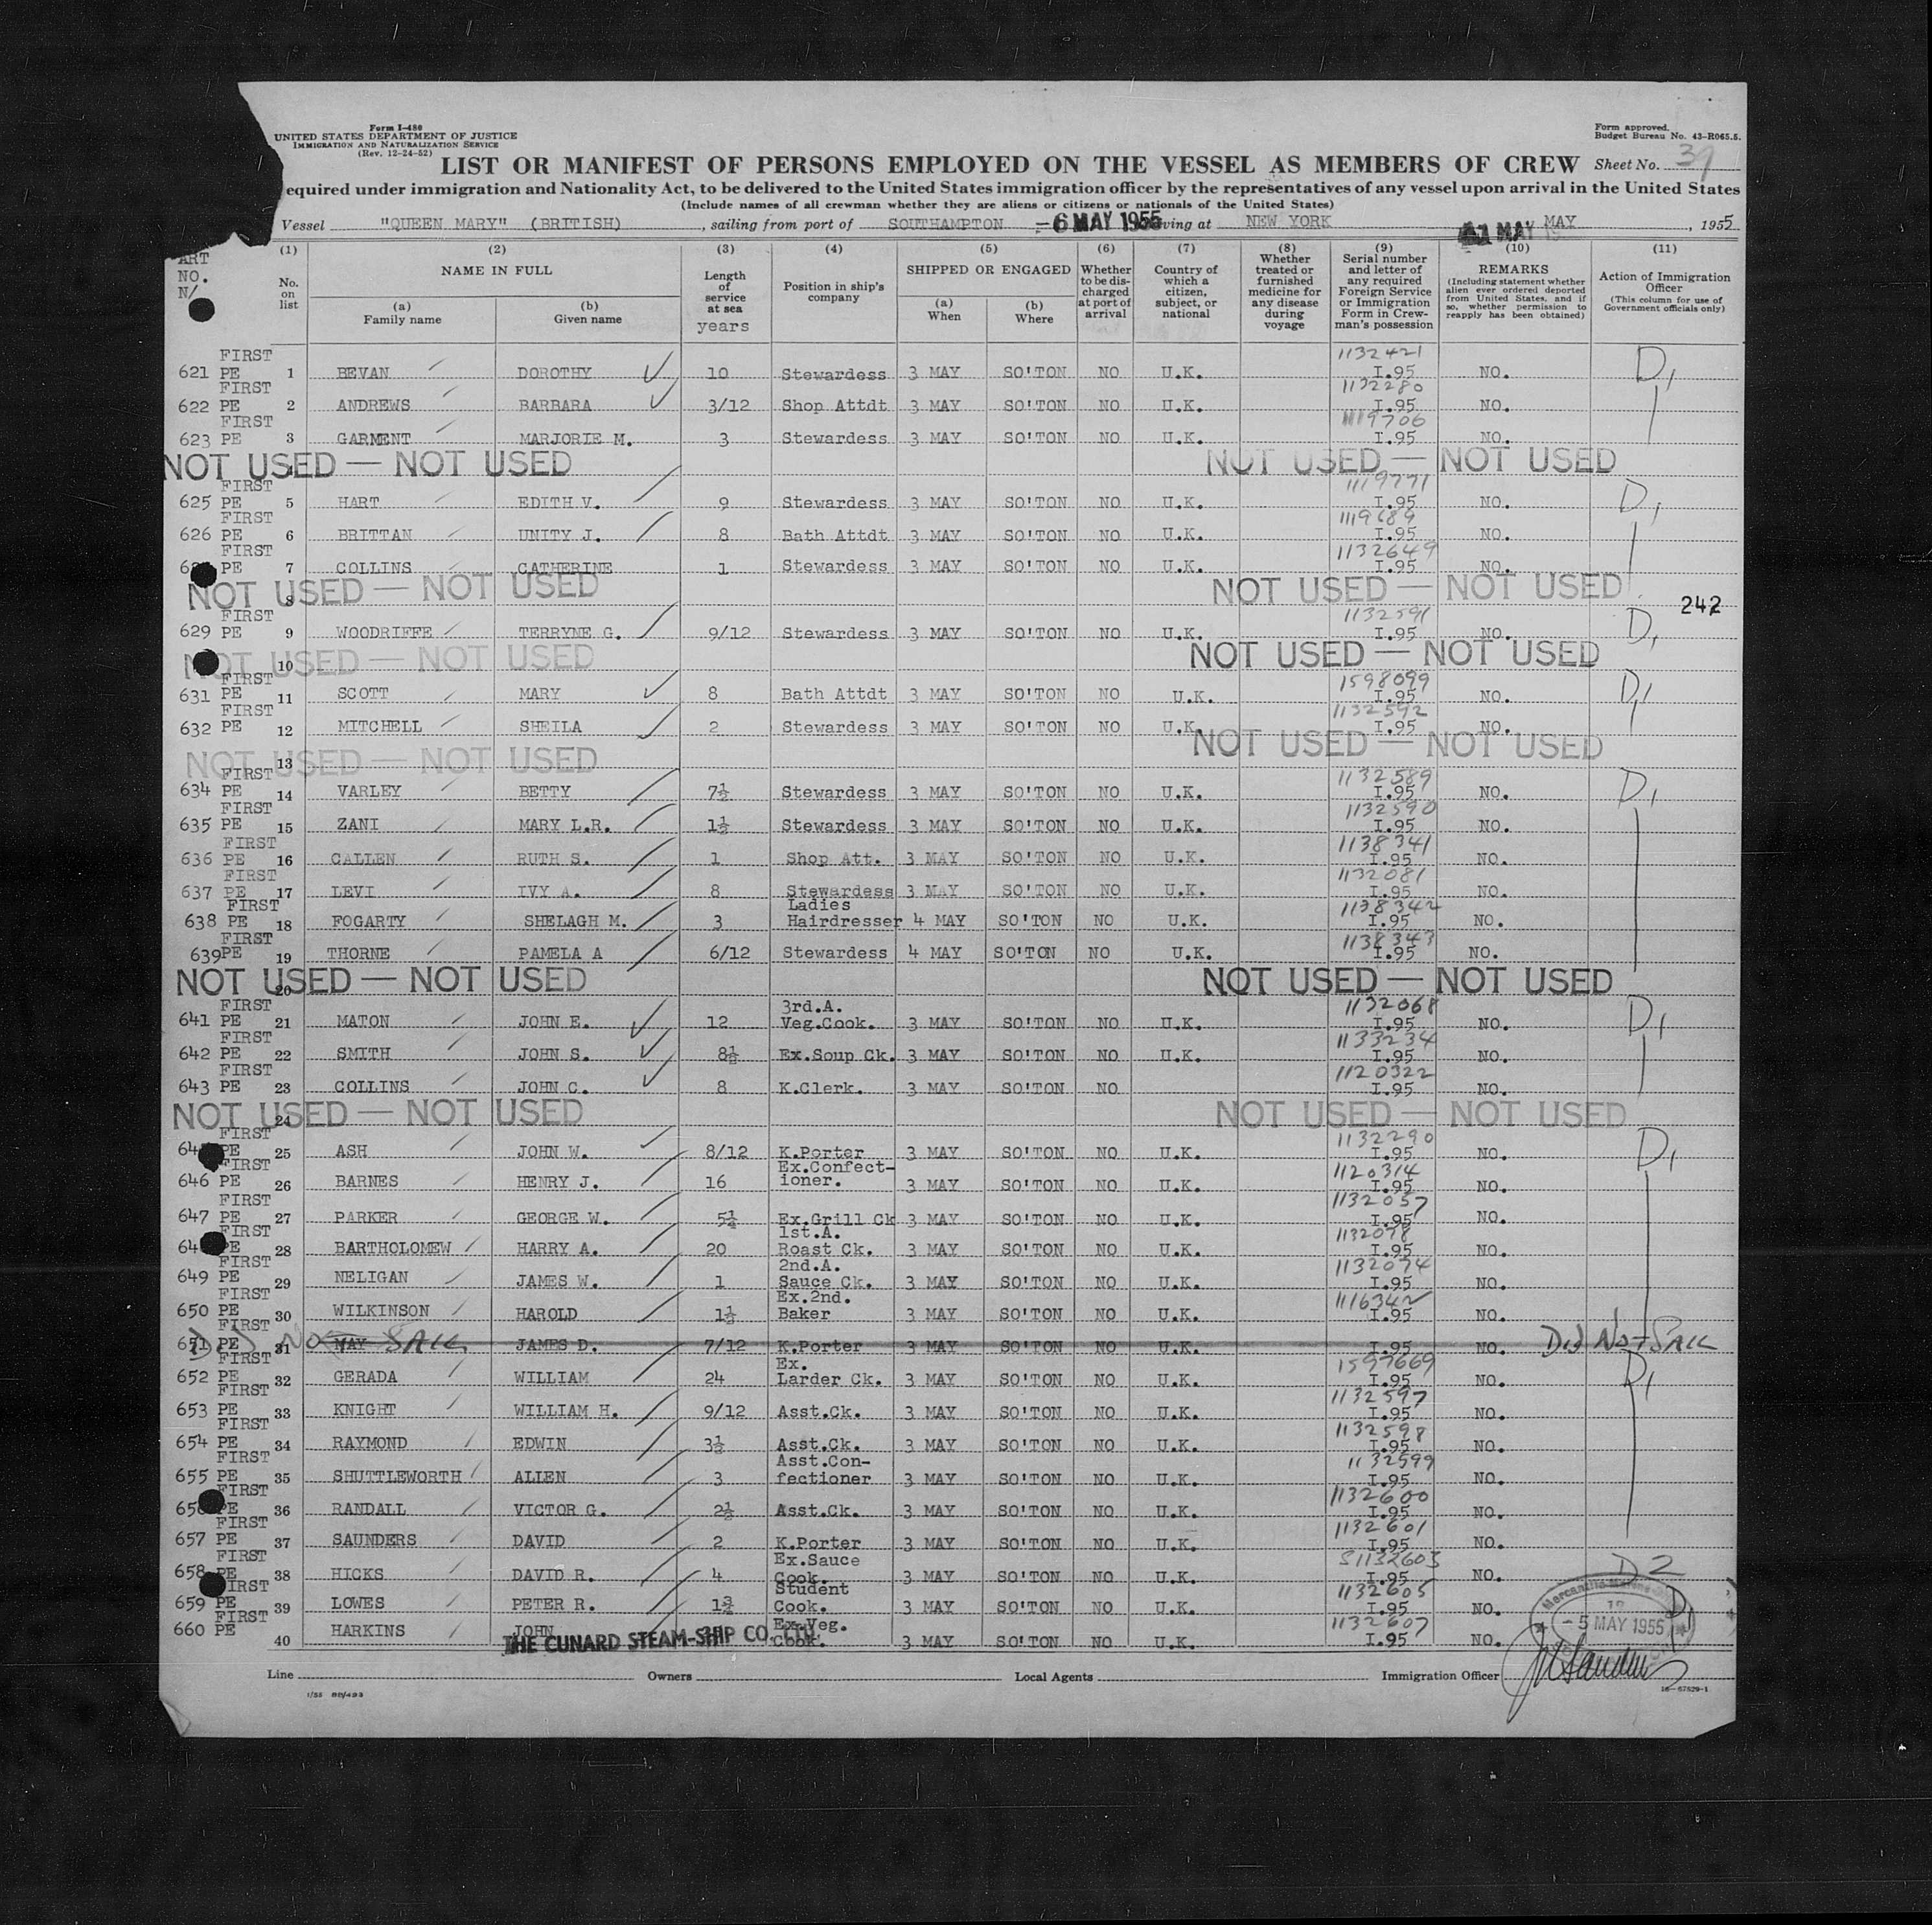 Form I-480
UNITED STATES DEPARTMENT OF JUSTICE
IMMIGRATION AND NATURALIZATION SERVICE
(Rev. 12-24-52)
Form approved.
Budget Bureau No. 43-R065.5.
LIST OR MANIFEST OF PERSONS EMPLOYED ON THE VESSEL AS MEMBERS OF CREW
Sheet No. 39
equired under immigration and Nationality Act, to be delivered to the United States immigration officer by the representatives of any vessel upon arrival in the United States
(Include names of all crewman whether they are aliens or citizens or nationals of the United States)
Vessel "QUEEN MARY" (BRITISH), sailing from port of SOUTHAMPTON -6 MAY 1955 ving at NEW YORK MAY MAY, 1955
ART NO. N/
(1) No. on list
(2) NAME IN FULL
(a) Family name
(b) Given name
(3) Length of service at sea years
(4) Position in ship's company
(5) SHIPPED OR ENGAGED
(a) When
(b) Where
(6) Whether to be discharged at port of arrival
(7) Country of which a citizen, subject, or national
(8) Whether treated or furnished medicine for any disease during voyage
(9) Serial number and letter of any required Foreign Service or Immigration Form in Crewman's possession
(10) REMARKS (Including statement whether alien ever ordered deported from United States, and if so, whether permission to reapply has been obtained)
(11) Action of Immigration Officer (This column for use of Government officials only)
621 FIRST PE 1 BEVAN DOROTHY 10 Stewardess 3 MAY SO'TON NO U.K. 1132421 I.95 NO. D1
622 FIRST PE 2 ANDREWS BARBARA 3/12 Shop Attdt 3 MAY SO'TON NO U.K. 1132280 I.95 NO.
623 FIRST PE 3 GARMENT MARJORIE M. 3 Stewardess 3 MAY SO'TON NO U.K. 1119706 I.95 NO.
NOT USED — NOT USED NOT USED — NOT USED
625 FIRST PE 5 HART EDITH V. 9 Stewardess 3 MAY SO'TON NO U.K. 1119771 I.95 NO. D1
626 FIRST PE 6 BRITTAN UNITY J. 8 Bath Attdt 3 MAY SO'TON NO U.K. 1119689 I.95 NO.
FIRST PE 7 COLLINS CATHERINE 1 Stewardess 3 MAY SO'TON NO U.K. 1132649 I.95 NO.
NOT USED — NOT USED 8 NOT USED — NOT USED
242
629 FIRST PE 9 WOODRIFFE TERRYNE G. 9/12 Stewardess 3 MAY SO'TON NO U.K. 1132591 I.95 NO. D1
NOT USED — NOT USED 10 NOT USED — NOT USED
631 FIRST PE 11 SCOTT MARY 8 Bath Attdt 3 MAY SO'TON NO U.K. 1598099 I.95 NO. D1
632 FIRST PE 12 MITCHELL SHEILA 2 Stewardess 3 MAY SO'TON NO U.K. 1132592 I.95 NO.
NOT USED — NOT USED 13 NOT USED — NOT USED
634 FIRST PE 14 VARLEY BETTY 7½ Stewardess 3 MAY SO'TON NO U.K. 1132589 I.95 NO. D1
635 FIRST PE 15 ZANI MARY L.R. 1½ Stewardess 3 MAY SO'TON NO U.K. 1132590 I.95 NO.
636 FIRST PE 16 CALLEN RUTH S. 1 Shop Att. 3 MAY SO'TON NO U.K. 1138341 I.95 NO.
637 FIRST PE 17 LEVI IVY A. 8 Stewardess 3 MAY SO'TON NO U.K. 1132081 I.95 NO.
638 FIRST PE 18 FOGARTY SHELAGH M. 3 Ladies Hairdresser 4 MAY SO'TON NO U.K. 1138342 I.95 NO.
639 FIRST PE 19 THORNE PAMELA A 6/12 Stewardess 4 MAY SO'TON NO U.K. 1138343 I.95 NO.
NOT USED — NOT USED 20 NOT USED — NOT USED
641 FIRST PE 21 MATON JOHN E. 12 3rd.A. Veg.Cook. 3 MAY SO'TON NO U.K. 1132068 I.95 NO. D1
642 FIRST PE 22 SMITH JOHN S. 8½ Ex.Soup Ck. 3 MAY SO'TON NO U.K. 1133234 I.95 NO.
643 FIRST PE 23 COLLINS JOHN C. 8 K.Clerk. 3 MAY SO'TON NO 1120322 I.95 NO.
NOT USED — NOT USED 24 NOT USED — NOT USED
FIRST PE 25 ASH JOHN W. 8/12 K.Porter 3 MAY SO'TON NO U.K. 1132290 I.95 NO. D1
646 FIRST PE 26 BARNES HENRY J. 16 Ex.Confect-ioner. 3 MAY SO'TON NO U.K. 1120314 I.95 NO.
647 FIRST PE 27 PARKER GEORGE W. 5½ Ex.Grill Ck 3 MAY SO'TON NO U.K. 1132057 I.95 NO.
FIRST PE 28 BARTHOLOMEW HARRY A. 20 1st.A. Roast Ck. 3 MAY SO'TON NO U.K. 1132078 I.95 NO.
649 FIRST PE 29 NELIGAN JAMES W. 1 2nd.A. Sauce Ck. 3 MAY SO'TON NO U.K. 1132074 I.95 NO.
650 FIRST PE 30 WILKINSON HAROLD 1½ Ex.2nd. Baker 3 MAY SO'TON NO U.K. 1116342 I.95 NO.
651 FIRST PE 31 MAY JAMES D. 7/12 K.Porter 3 MAY SO'TON NO U.K. I.95 NO. Did Not Sail
Did Not Sail
652 FIRST PE 32 GERADA WILLIAM 24 Ex. Larder Ck. 3 MAY SO'TON NO U.K. 1597669 I.95 NO. D1
653 FIRST PE 33 KNIGHT WILLIAM H. 9/12 Asst.Ck. 3 MAY SO'TON NO U.K. 1132597 I.95 NO.
654 FIRST PE 34 RAYMOND EDWIN 3½ Asst.Ck. 3 MAY SO'TON NO U.K. 1132598 I.95 NO.
655 FIRST PE 35 SHUTTLEWORTH ALLEN 3 Asst.Con-fectioner 3 MAY SO'TON NO U.K. 1132599 I.95 NO.
FIRST PE 36 RANDALL VICTOR G. 2½ Asst.Ck. 3 MAY SO'TON NO U.K. 1132600 I.95 NO.
657 FIRST PE 37 SAUNDERS DAVID 2 K.Porter 3 MAY SO'TON NO U.K. 1132601 I.95 NO.
658 FIRST PE 38 HICKS DAVID R. 4 Ex.Sauce Cook. 3 MAY SO'TON NO U.K. 1132603 I.95 NO. D2
659 FIRST PE 39 LOWES PETER R. Student Cook. 3 MAY SO'TON NO U.K. 1132605 I.95 NO. D1
660 FIRST PE 40 HARKINS JOHN Ex.Veg. Cook. 3 MAY SO'TON NO U.K. 1132607 I.95 NO.
THE CUNARD STEAM-SHIP CO. LTD
Mercantile Marine
-5 MAY 1955
Line Owners Local Agents Immigration Officer
16-67529-1